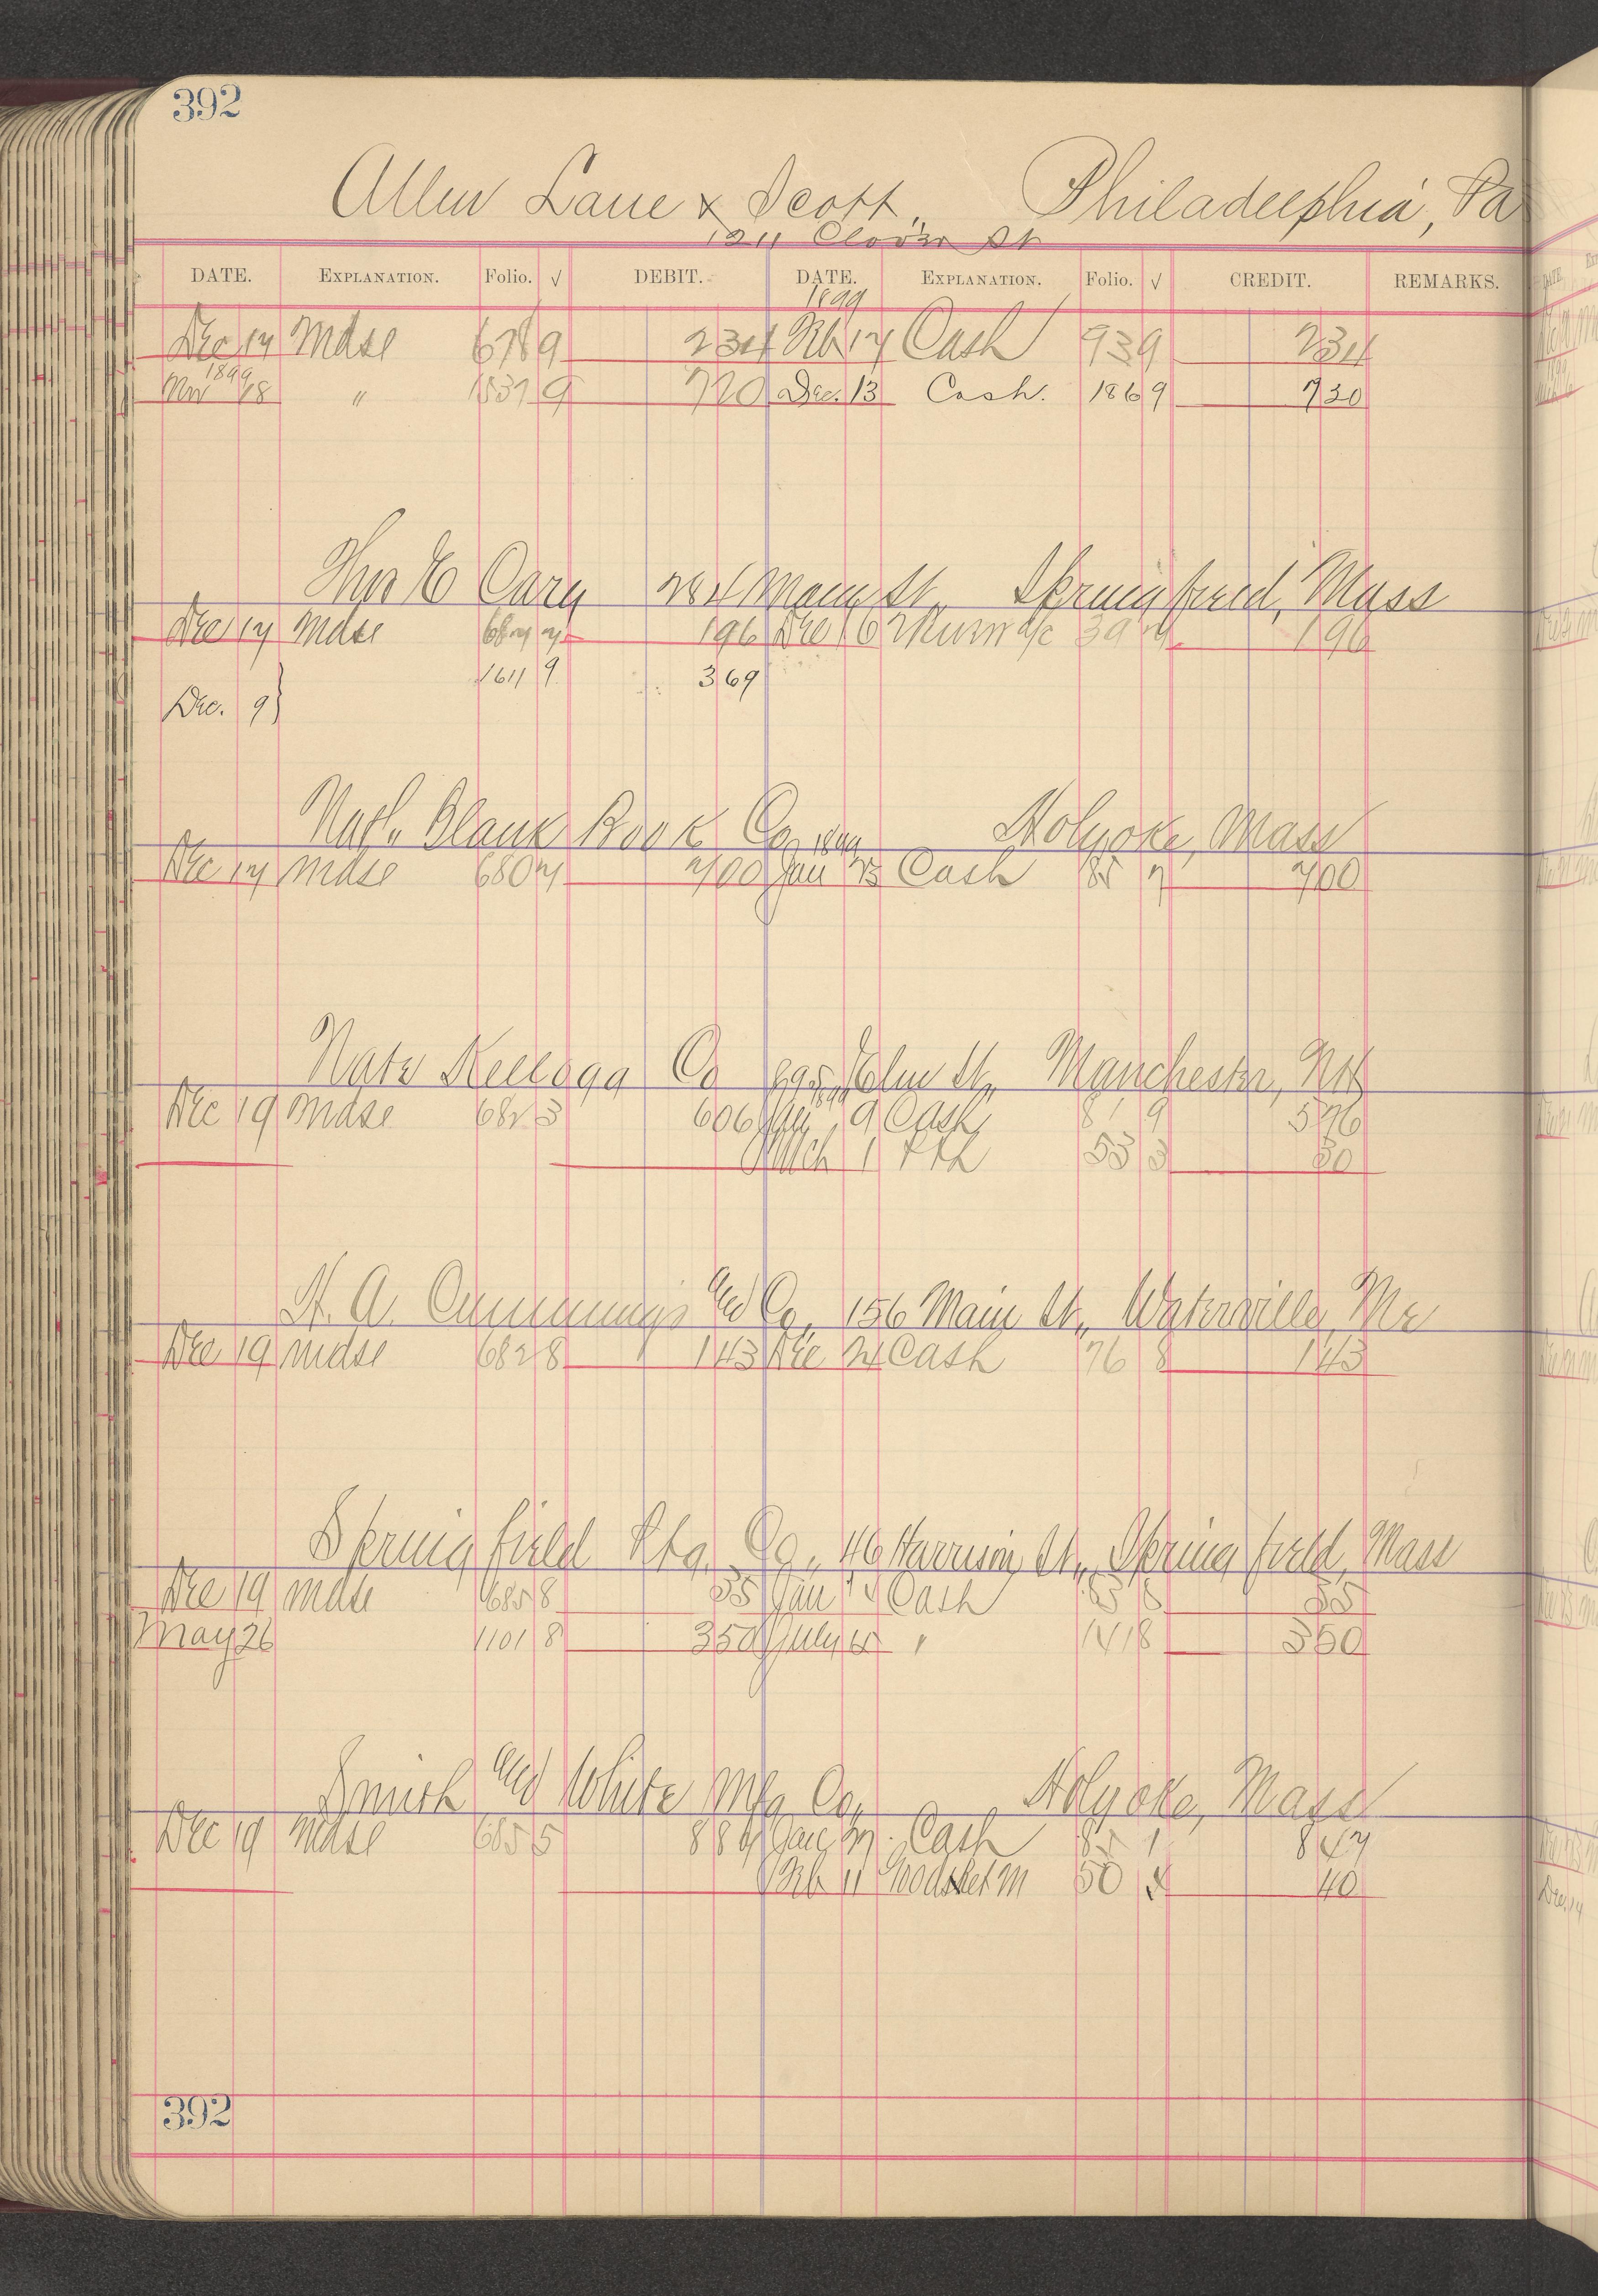 392
Allen Lane & Scott, Philadelphia, Pa
1211 Clover St
DATE. EXPLANATION. Folio. √ DEBIT. DATE. EXPLANATION. Folio. √ CREDIT. REMARKS.
1899
Dec 17 Mdse 678 9 234 Feb 17 Cash 93 9 234
1899
Nov 18 " 1537 9 720 Dec. 13 Cash. 186 9 720
Main St. Springfield, Mass
Dec 17 Mdse 196 Dec 196
1611 9 3 69
Dec. 9}
Natl. Blank Book Co Holyoke, Mass
1899
Dec 17 Mdse 680 7 700 Jan Cash 7 700
Kellogg Co 895 Elm St., Manchester, NH
Dec 19 Mdse 682 3 606 9 Cash 8 9 576
Mch 1 53 3 30
H. A. Cummings and Co, 156 Main St., Waterville, Me
Dec 19 Mdse 682 8 143 Dec 24 Cash 76 8 143
Springfield Ptg. Co., 46 Harrison St., Springfield, Mass
Dec 19 Mdse 685 8 35 Jan Cash 35
May 26 1101 8 350 July " 141 8 350
Smith and White Mfg Co, Holyoke, Mass
Dec 19 Mdse 685 5 887 Jan Cash 1 847
Feb 11 50 40
392